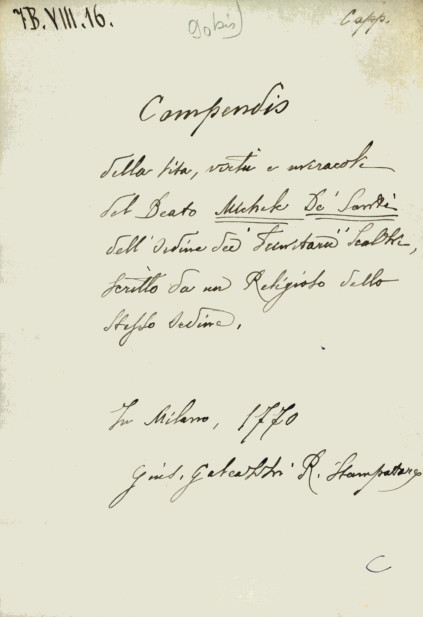 7B.VIII.16.
Capp.
Compendio
della vita, virtù e miracoli
del Beato Michele De' Santi
dell' Ordine dei Trinitarii Scalzi,
scritto da un Religioso dello
stesso Ordine.
In Milano, 1770
Gius. Galeazzi R. Stampatore
C